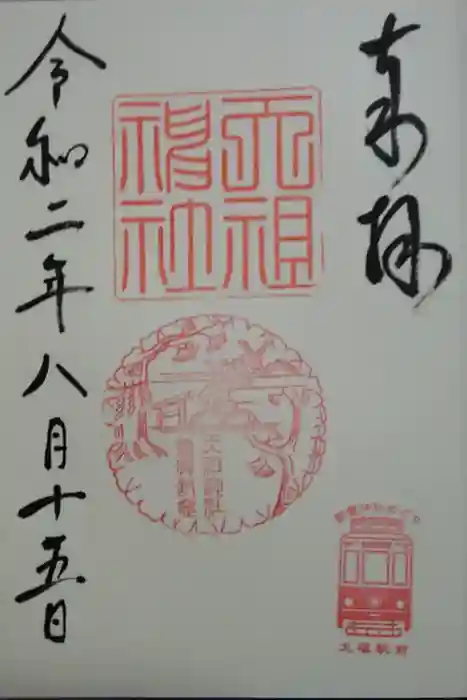 奉拝
天祖神社
令和二年八月十五日
大塚駅前